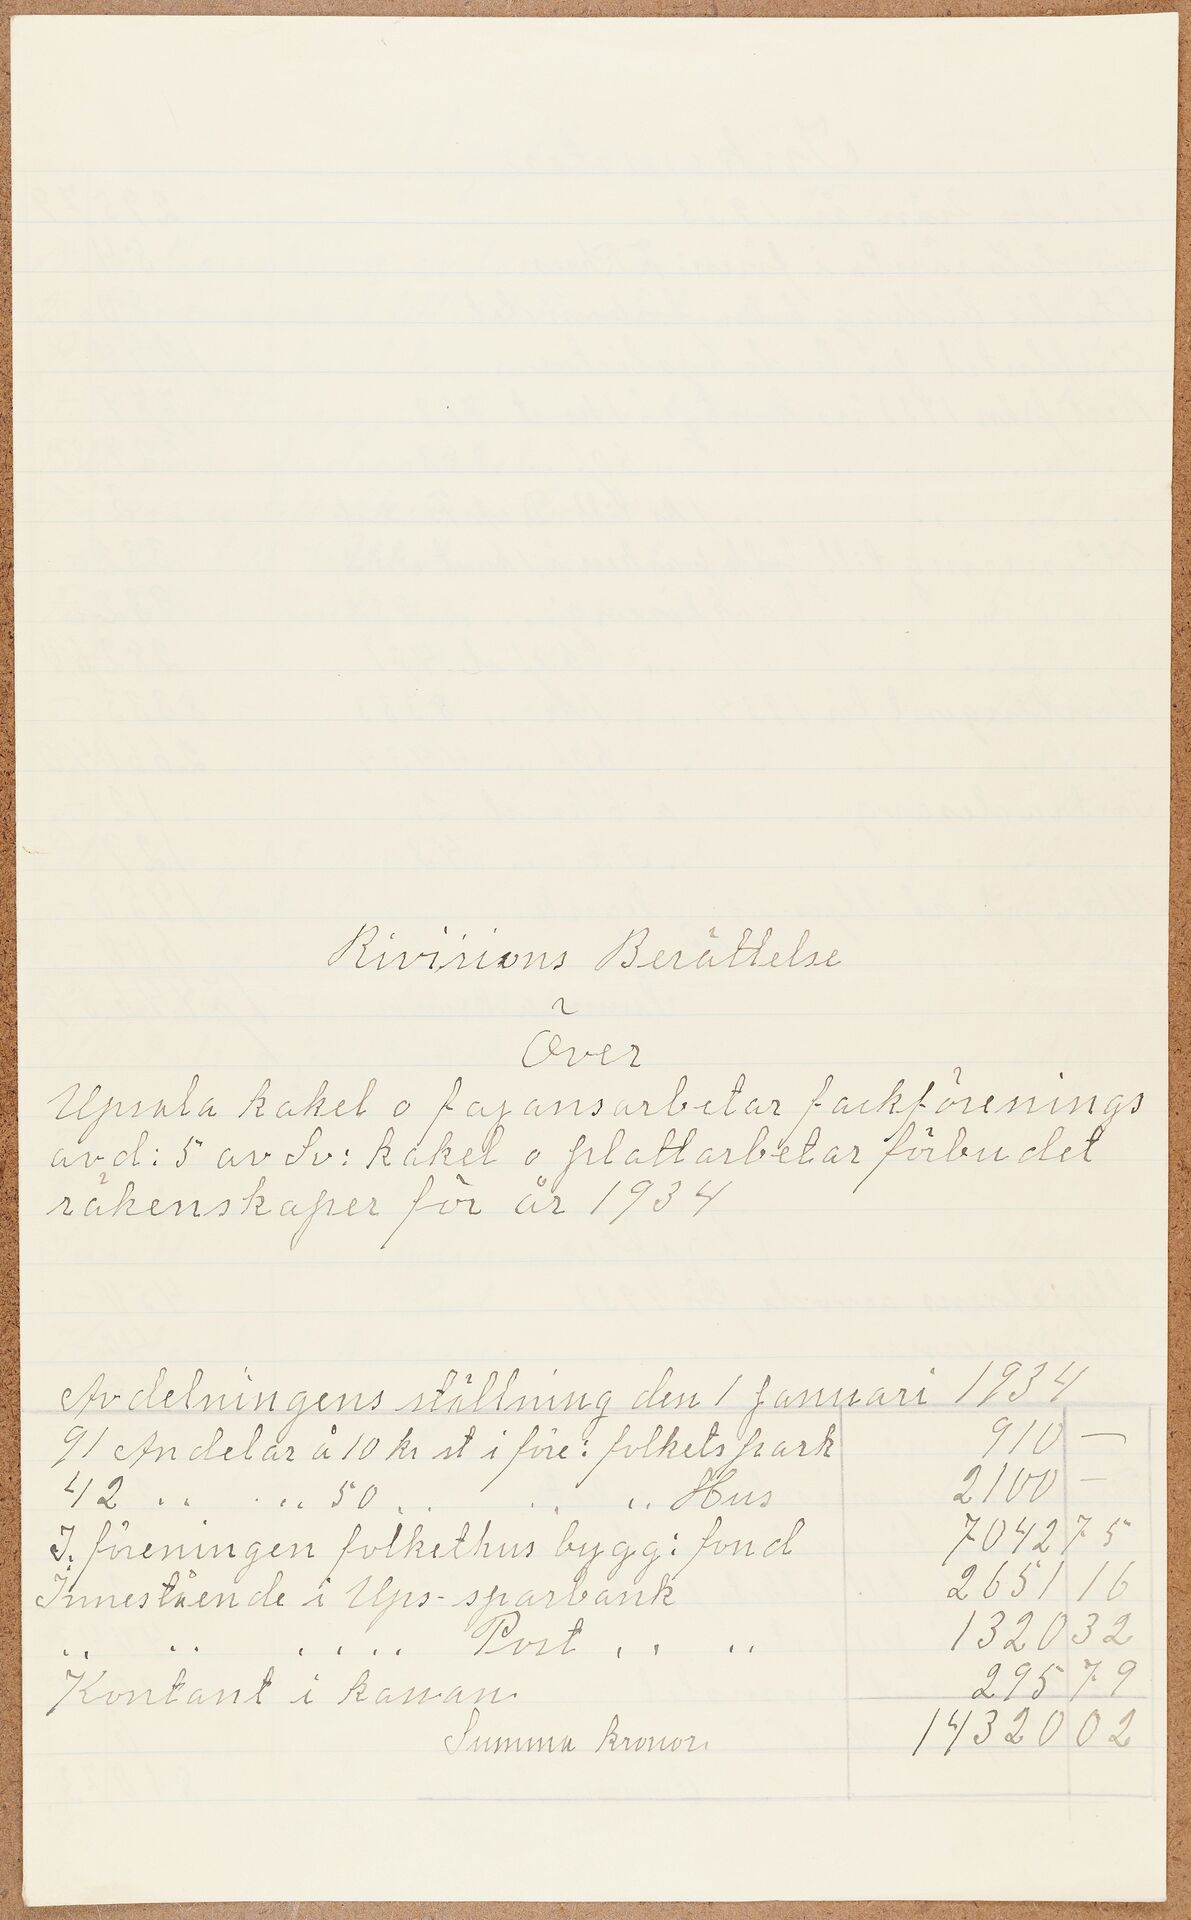 Rivisions Berättelse
Över
Upsala kakel o fajansarbetar fackförenings
avd: 5 av Sv: kakel o plattarbetar förbudet
räkenskaper för år 1934
Avdelningens ställning den 1 Januari 1934
91 Andelar å 10 kr st i före: folkets park 910 —
42 .. .. .. 50 .. .. .. Hus 2100 —
I. föreningen folkethus bygg: fond 7042 75
Innestående i Ups-sparbank 2651 16
.. .. .. .. Post .. .. 1320 32
Kontant i kassan 295 79
Summa kronor 14320 02